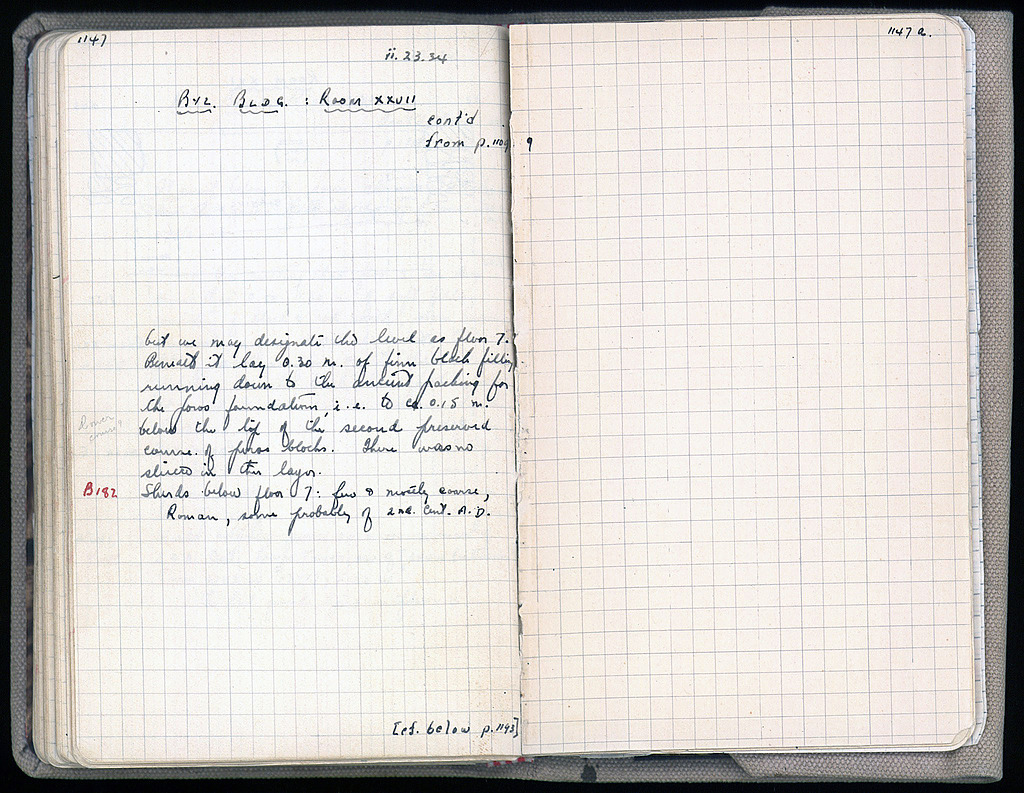 1147
ii.23.34
Byz. Bldg. : Room XXVII
cont'd
from p. 1109
but we may designate this level as floor 7.
Beneath it lay 0.30 m. of firm black filling
running down to the ancient packing for
the poros foundation, i.e. to ca. 0.15 m.
below the lip of the second preserved
course of poros blocks. There was no
strata in this layer.
B182 Sherds below floor 7: few & mostly coarse,
Roman, some probably of 2nd. Cent. A.D.
[cf. below p. 1193]
1147 a.
9